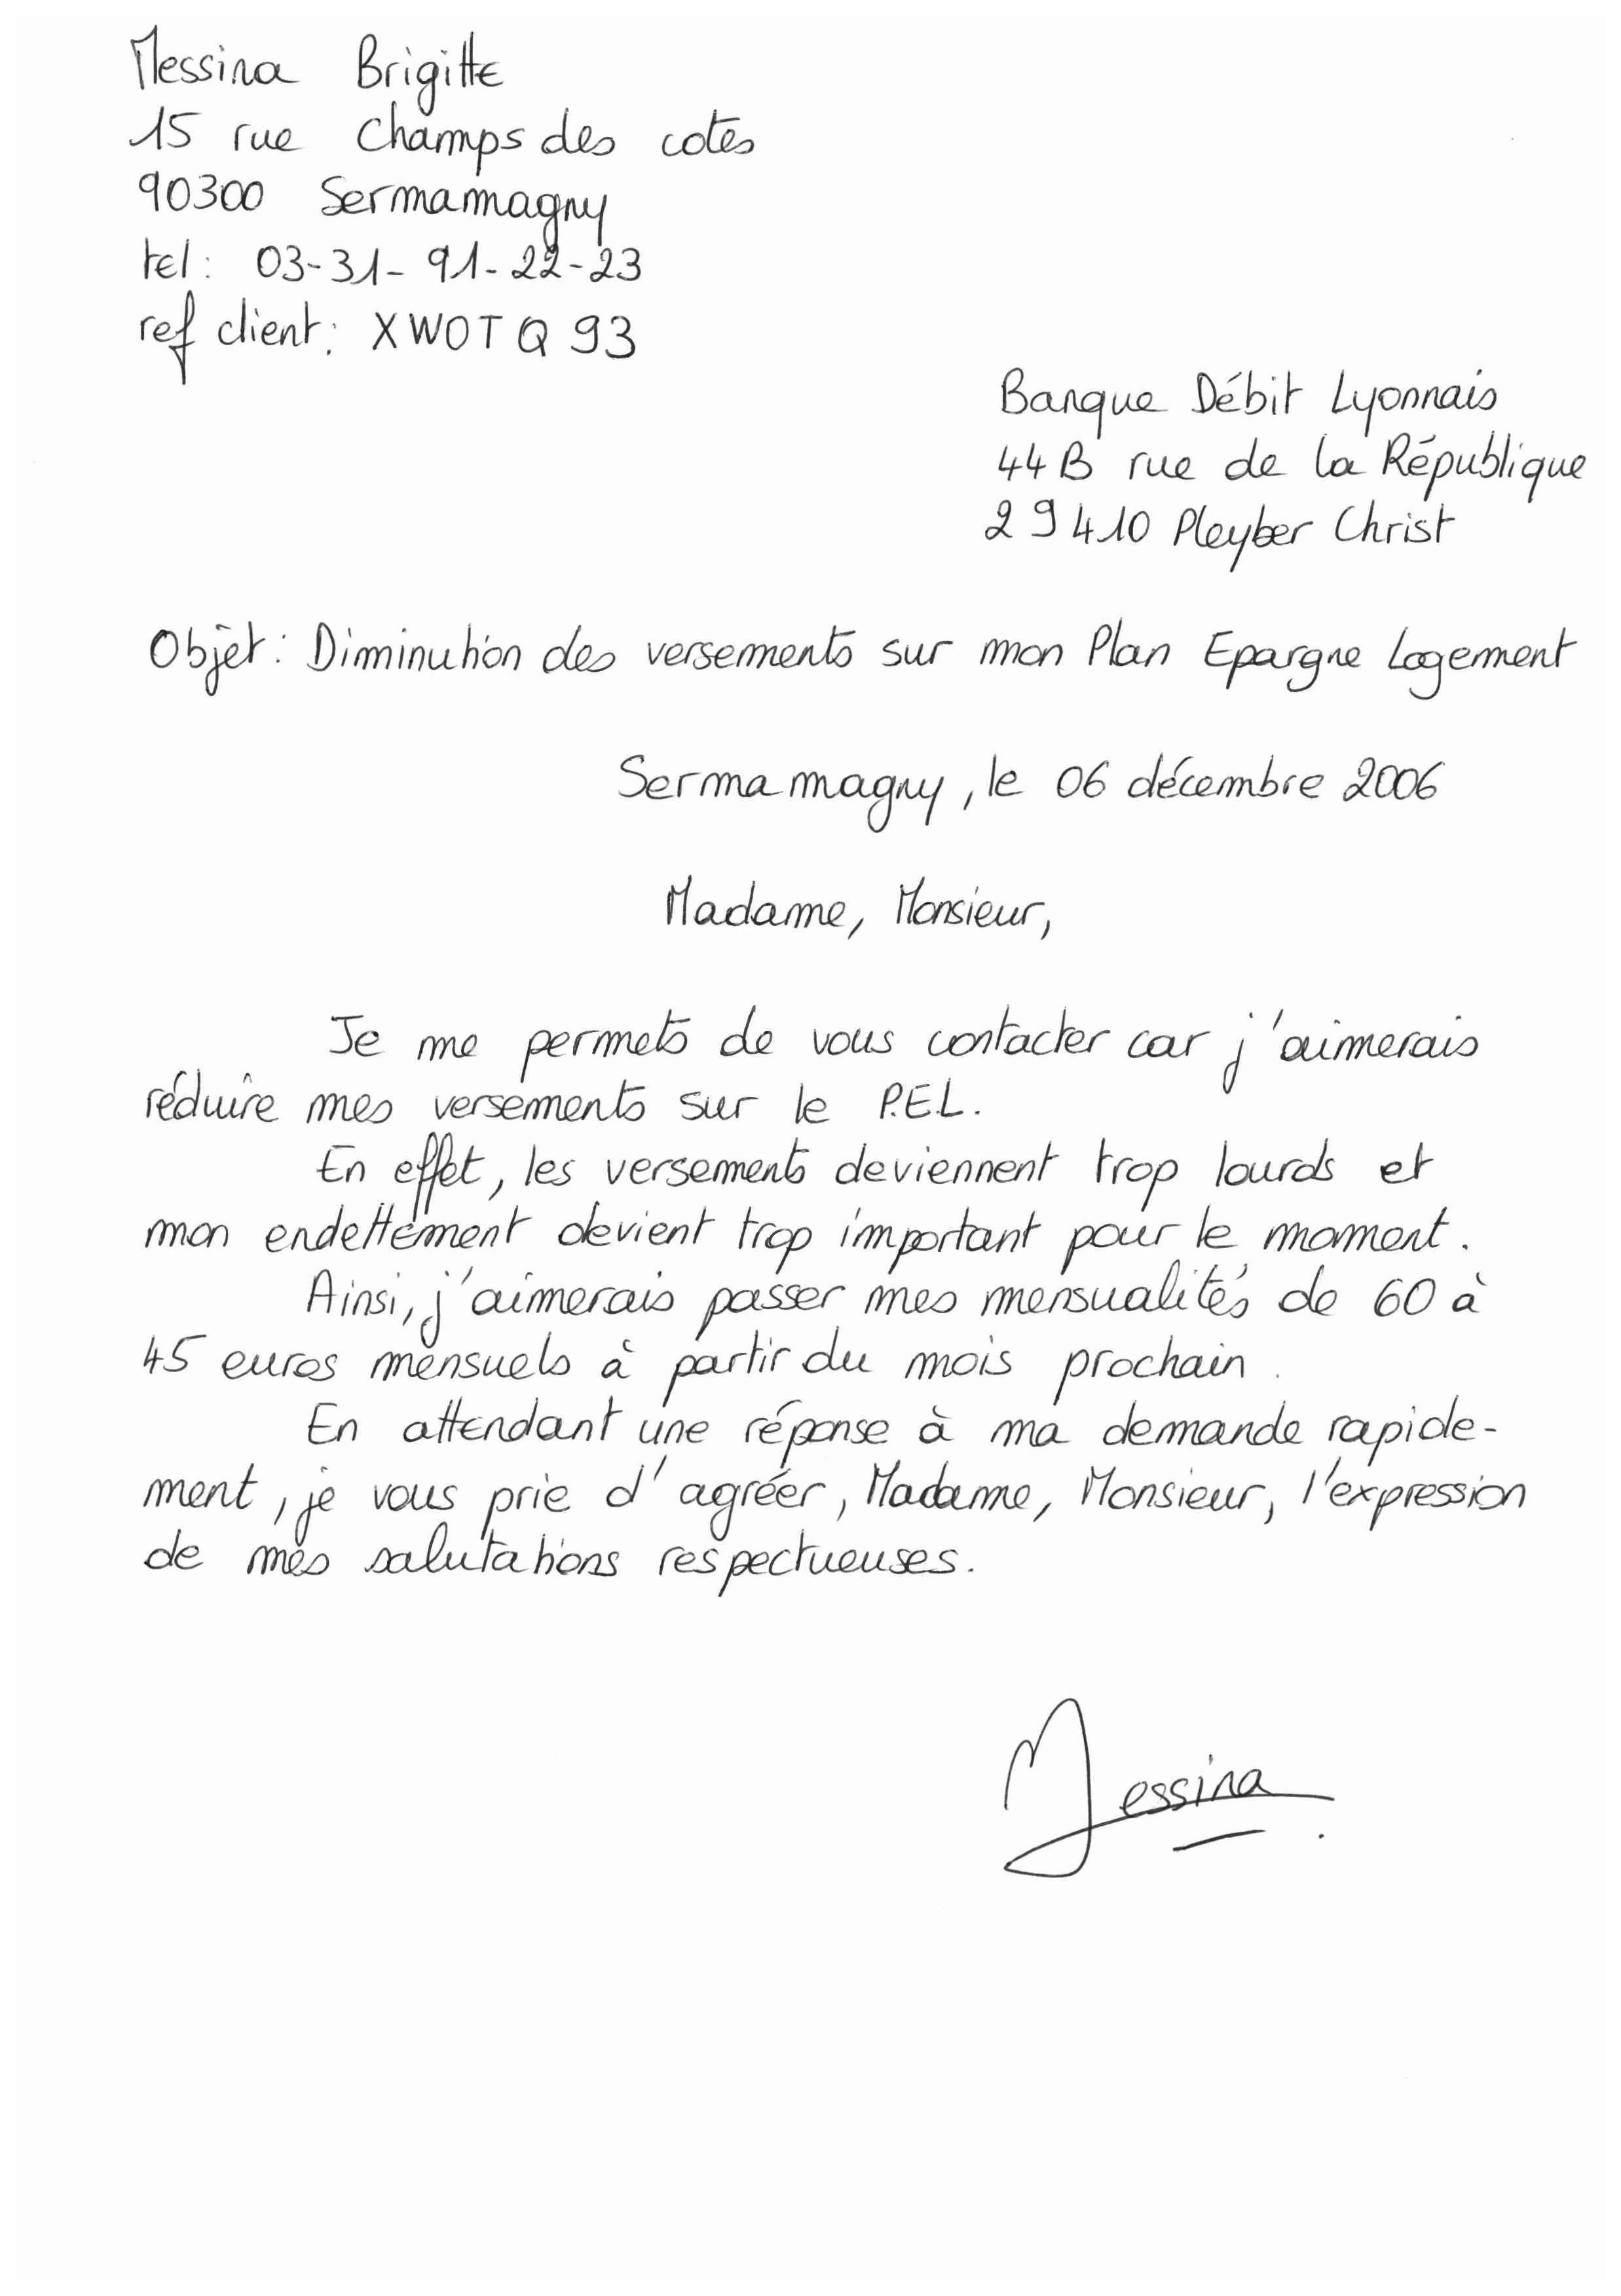 Messina Brigitte
15 rue Champs des cotes
90300 Sermamagny
tel: 03-31-91-22-23
ref client: XWOTQ93
Banque Débit Lyonnais
44B rue de la République
29410 Pleyber Christ
Objet: Diminution des versements sur mon Plan Epargne Logement
Sermamagny, le 06 décembre 2006
Madame, Monsieur,
Je me permets de vous contacter car j'aimerais
réduire mes versements sur le P.E.L.
En effet, les versements deviennent trop lourds et
mon endettement devient trop important pour le moment.
Ainsi, j'aimerais passer mes mensualités de 60 à
45 euros mensuels à partir du mois prochain.
En attendant une réponse à ma demande rapide-
ment, je vous prie d'agréer, Madame, Monsieur, l'expression
de mes salutations respectueuses.
Messina